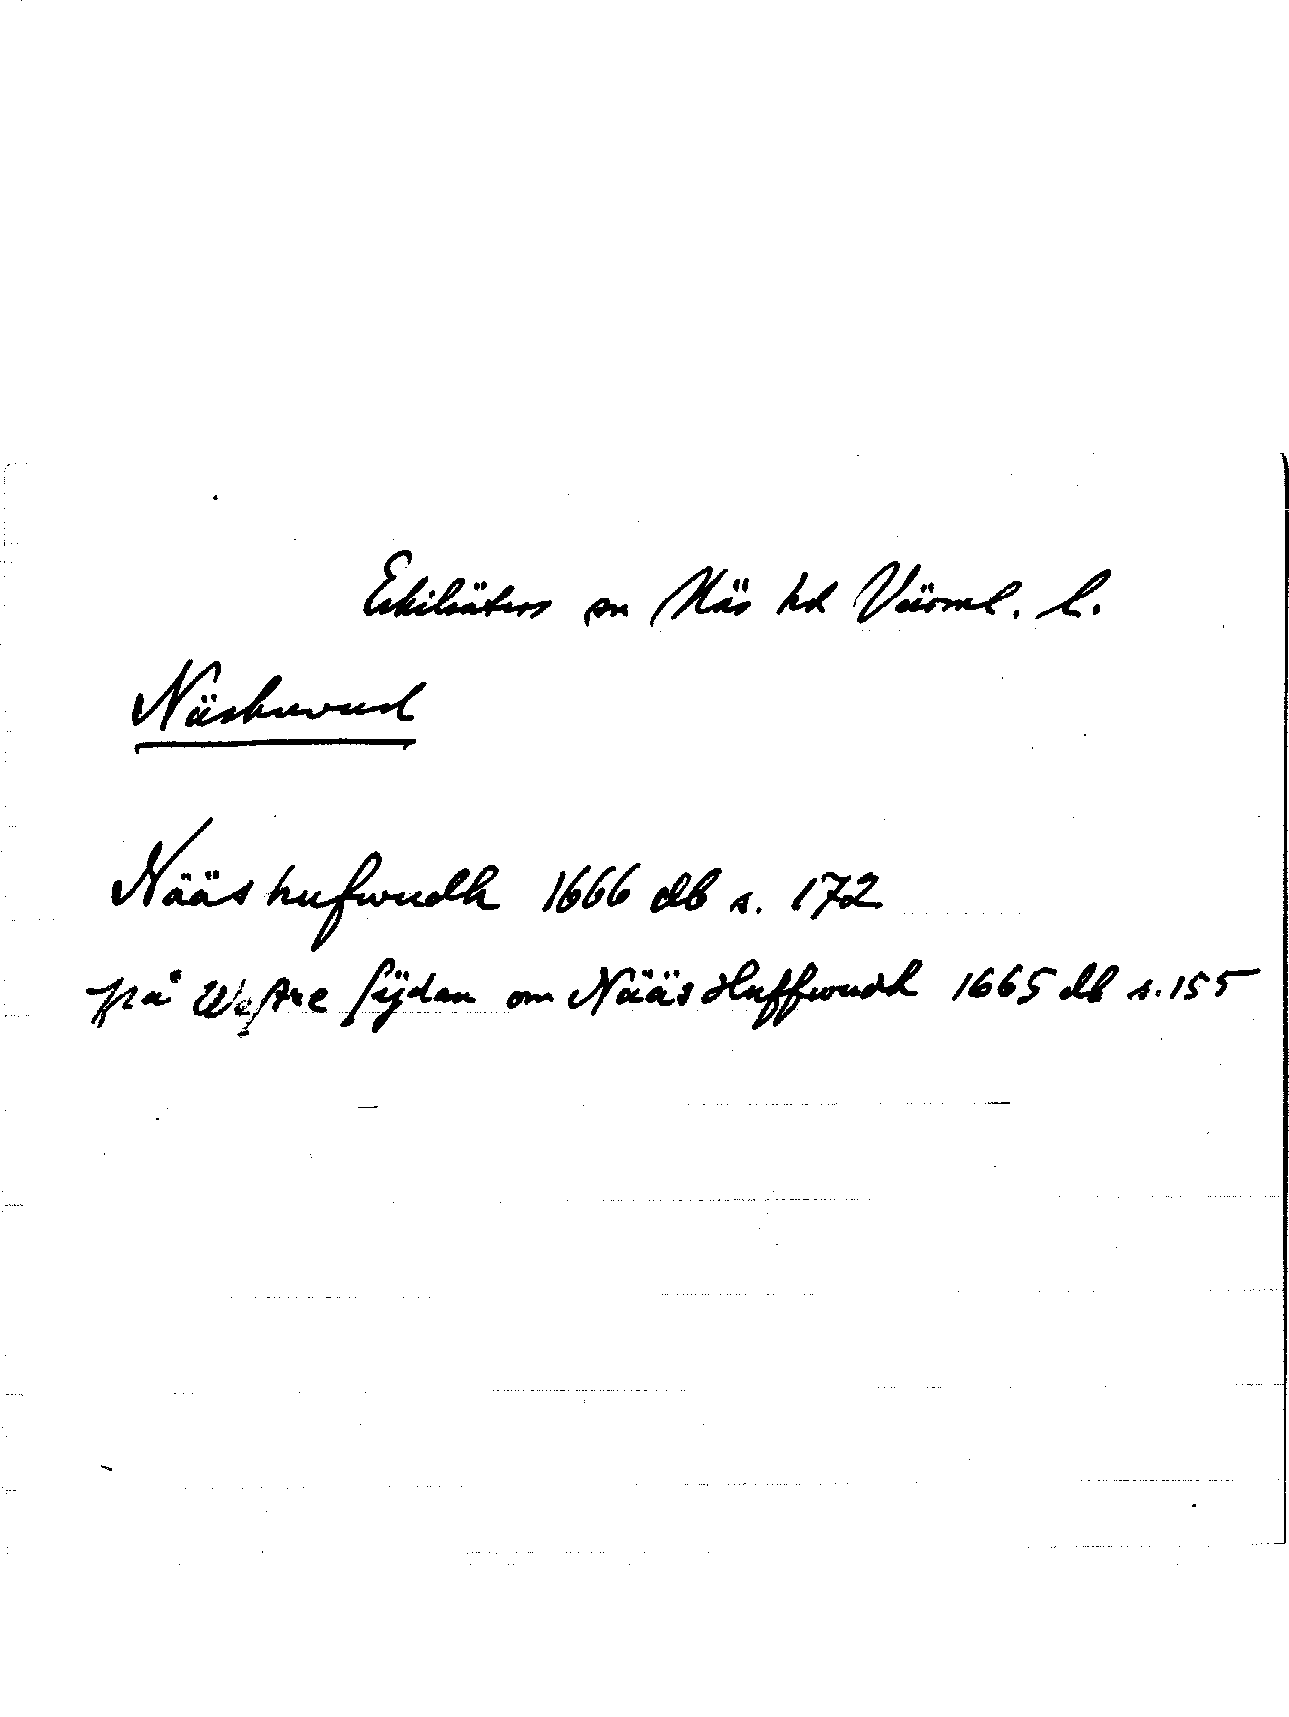 Eskilsäters sn Näs hd Värml. l.
Näshuvud
Nääs hufwudh 1666 db s. 172
på Westre sÿdan om Nääs Huffwudh 1665 db s. 155